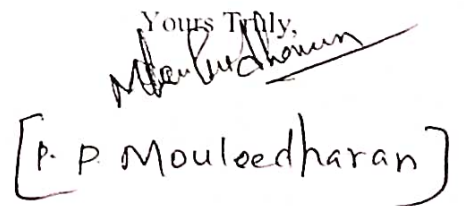 Yours Truly,
[P. P. Mouleedharan]